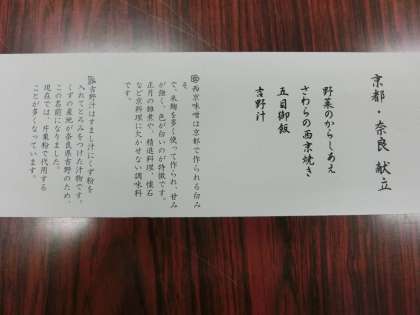 京都・奈良 献立
野菜のからしあえ
さわらの西京焼き
五目御飯
吉野汁
西京味噌は京都で作られる白み
そ
で、米麹を多く使って作られ、甘み
が強く、色が白いのが特徴です。
正月の雑煮や、精進料理、懐石
など京料理に欠かせない調味料
です。
吉野汁はすまし汁にくず粉を
入れてとろみをつけた汁物です。
くずの産地が奈良県吉野のため、
この名前になりました。
現在では、片栗粉で代用する
ことが多くなっています。